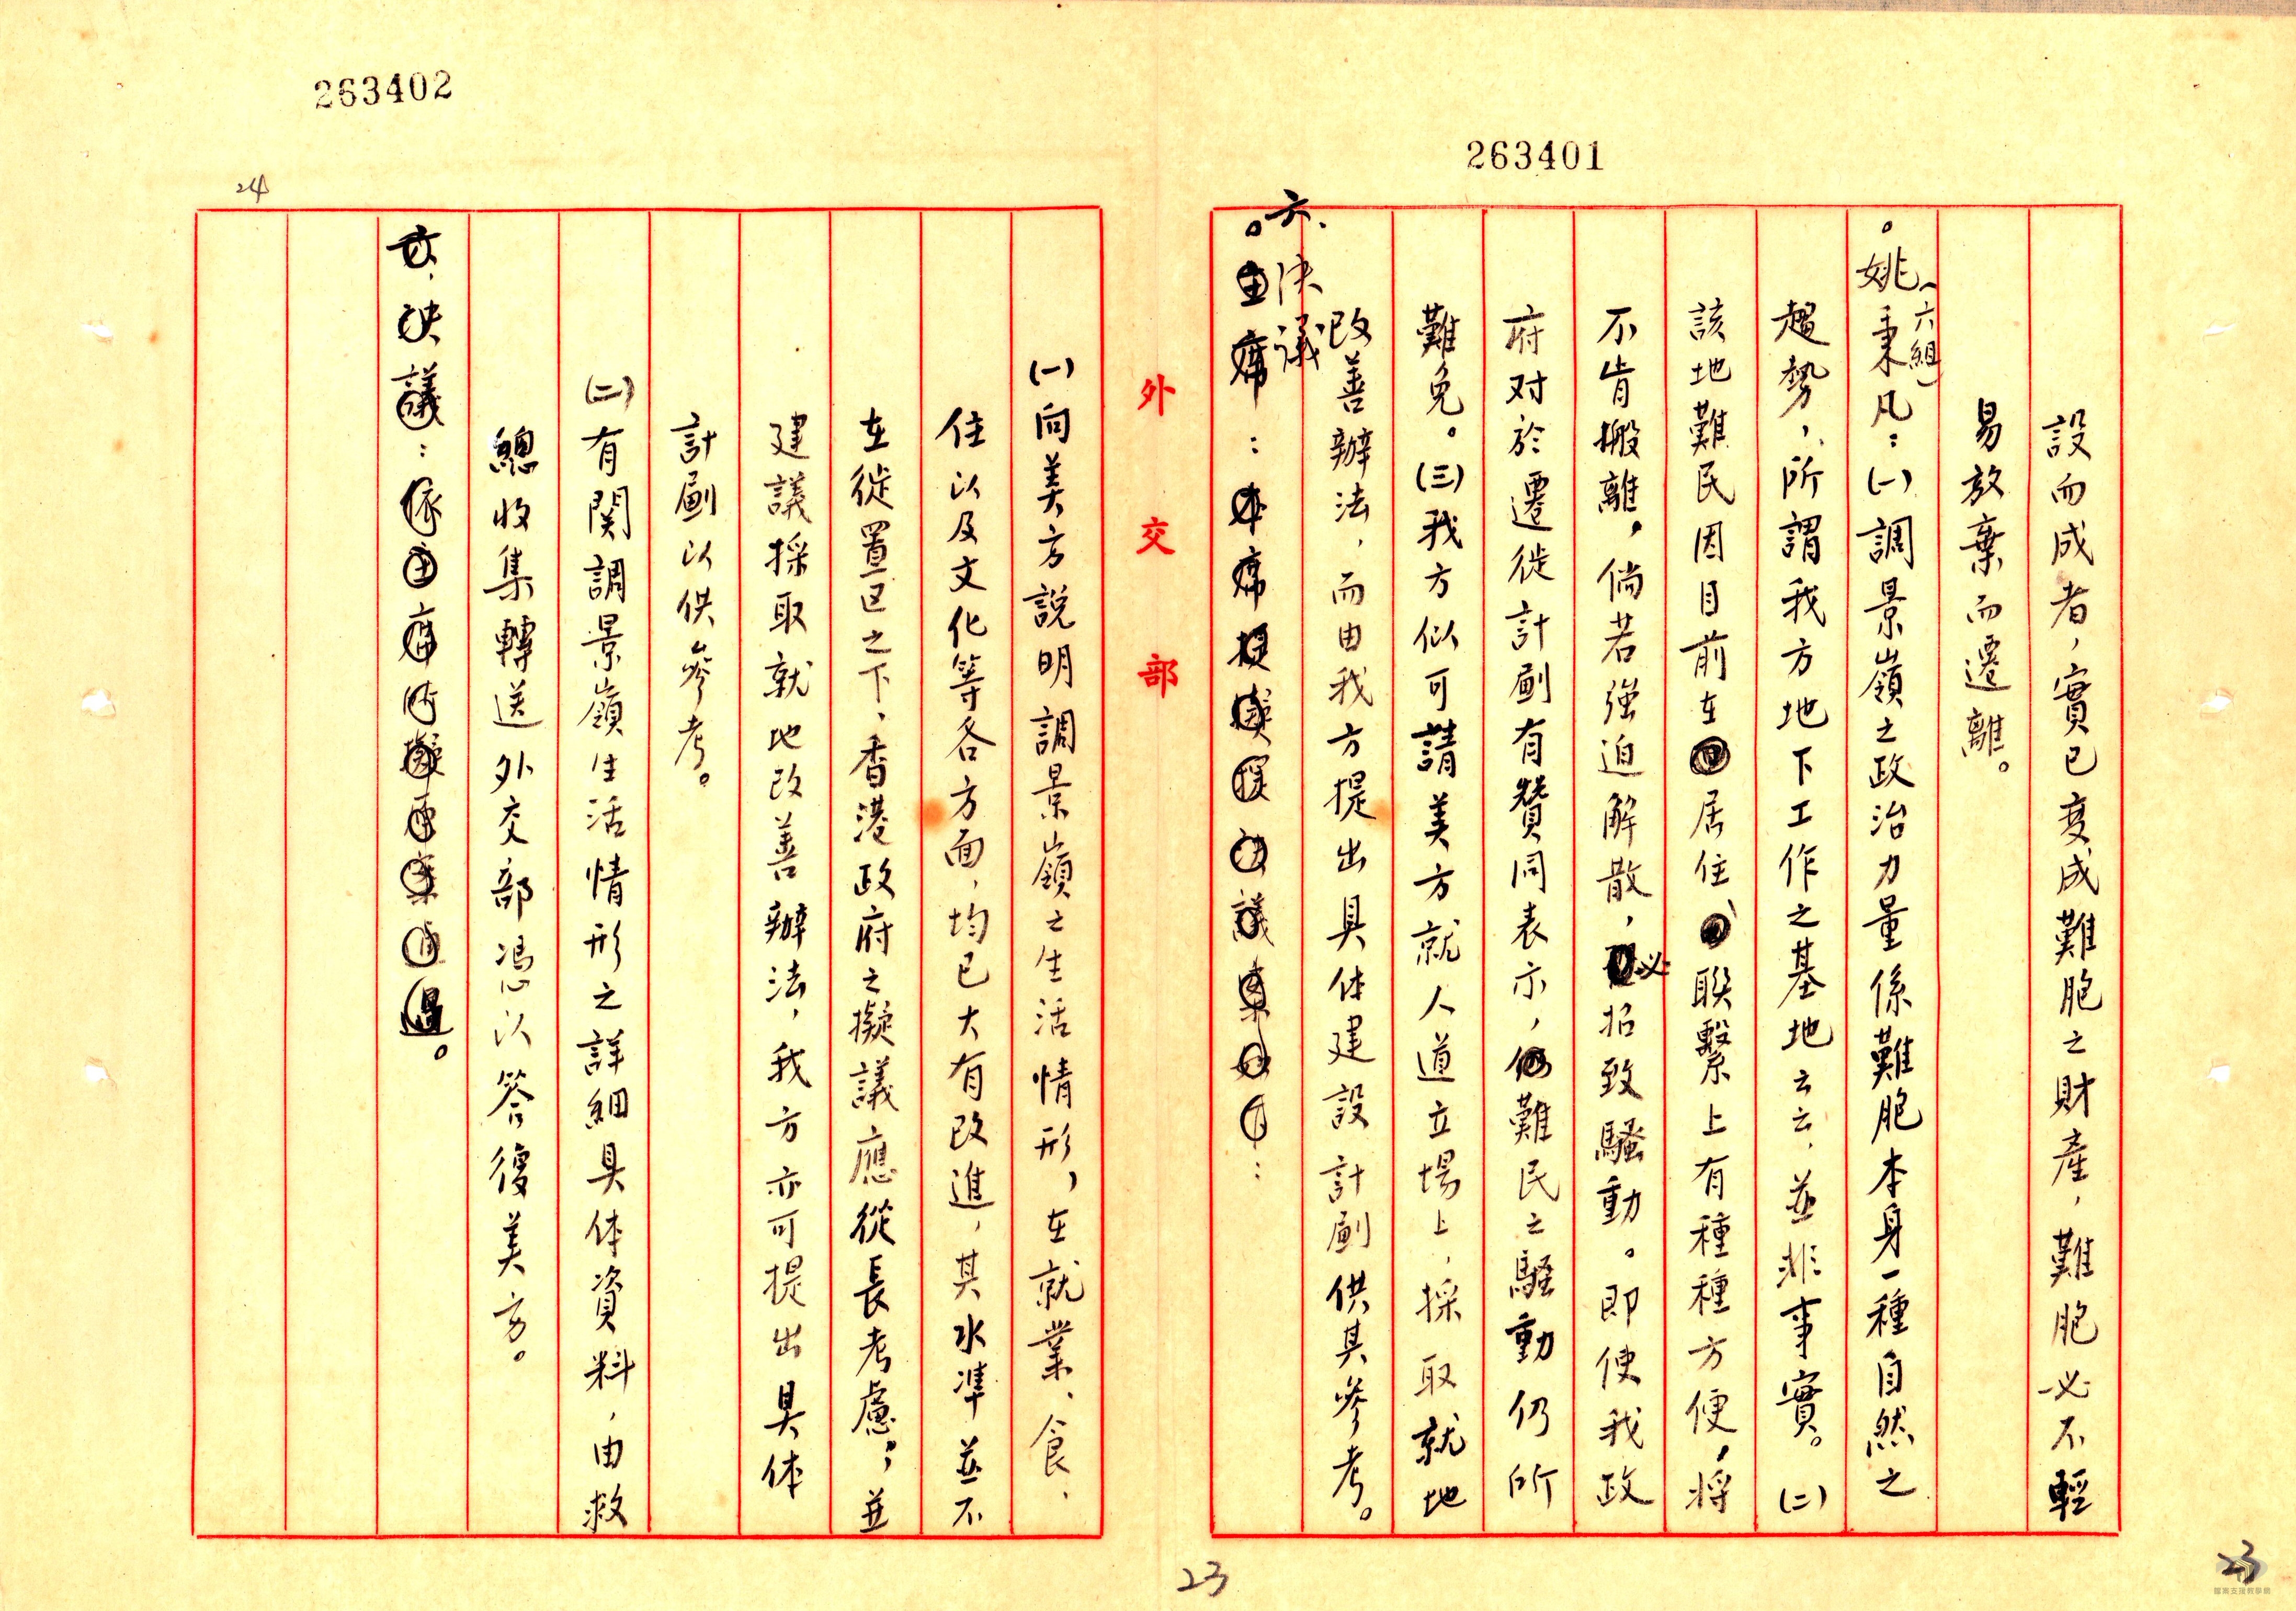 263401
設而成者，實已變成難胞之財產，難胞必不輕
易放棄而遷離。
。姚秉凡（六組）：(一)調景嶺之政治力量係難胞本身一種自然之
趨勢，所謂我方地下工作之基地云云，並非事實。(二)
該地難民因目前在居住、聯繫上有種種方便，將
不肯搬離，倘若強迫解散，必招致騷動。即使我政
府对於遷徙計劃有贊同表示，難民之騷動仍所
難免。(三)我方似可請美方就人道立場上，採取就地
改善辦法，而由我方提出具体建設計劃供其參考。
六、決議
。主席：本席擬提決議案如下：
23
23
外交部
263402
24
(一)向美方說明調景嶺之生活情形，在就業、食、
住以及文化等各方面，均已大有改進，其水準並不
在徙置区之下，香港政府之擬議應從長考慮，並
建議採取就地改善辦法，我方亦可提出具体
計劃以供參考。
(二)有関調景嶺生活情形之詳細具体資料，由救
總收集轉送外交部憑以答復美方。
六、決議：依主席所擬原案通過。